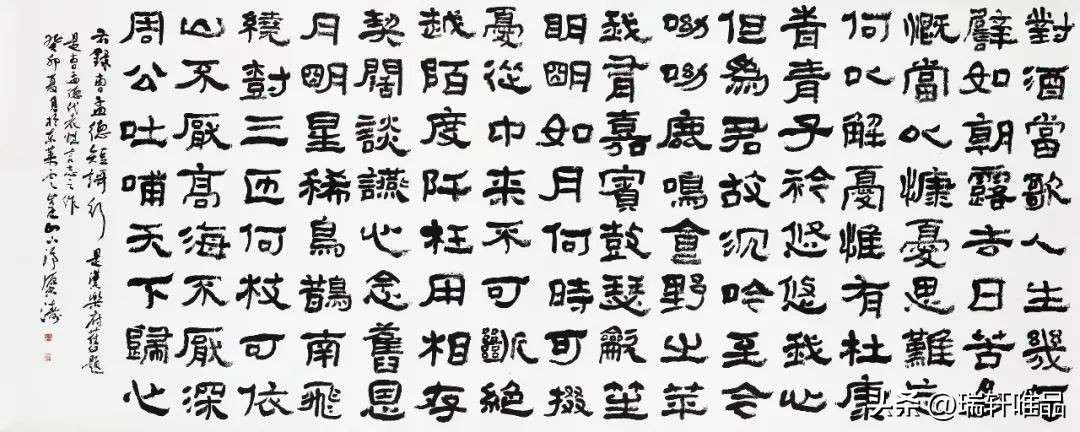 對酒當歌人生幾何
譬如朝露去日苦多
慨當以慷憂思難忘
何以解憂惟有杜康
青青子衿悠悠我心
但為君故沉吟至今
呦呦鹿鳴食野之苹
我有嘉賓鼓瑟龢笙
明明如月何時可掇
憂從中来不可斷絕
越陌度阡枉用相存
契闊談讌心念舊恩
月明星稀鳥鵲南飛
繞樹三匝何枝可依
山不厭高海不厭深
周公吐哺天下歸心
右錄曹孟德短謌行 是漢樂府舊題
是曹孟德代表性言志之作
癸卯夏月於東萊
头条@瑞轩唯品